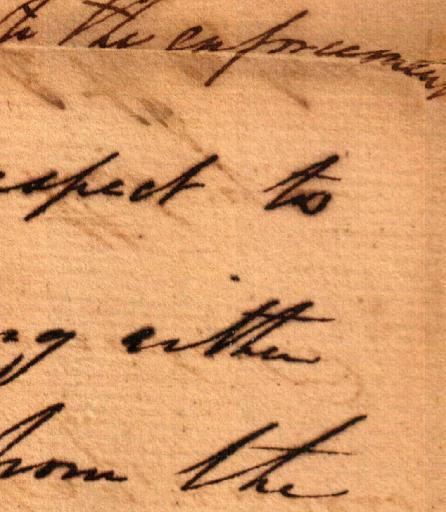 the enforcement
espect to
ng either
from the